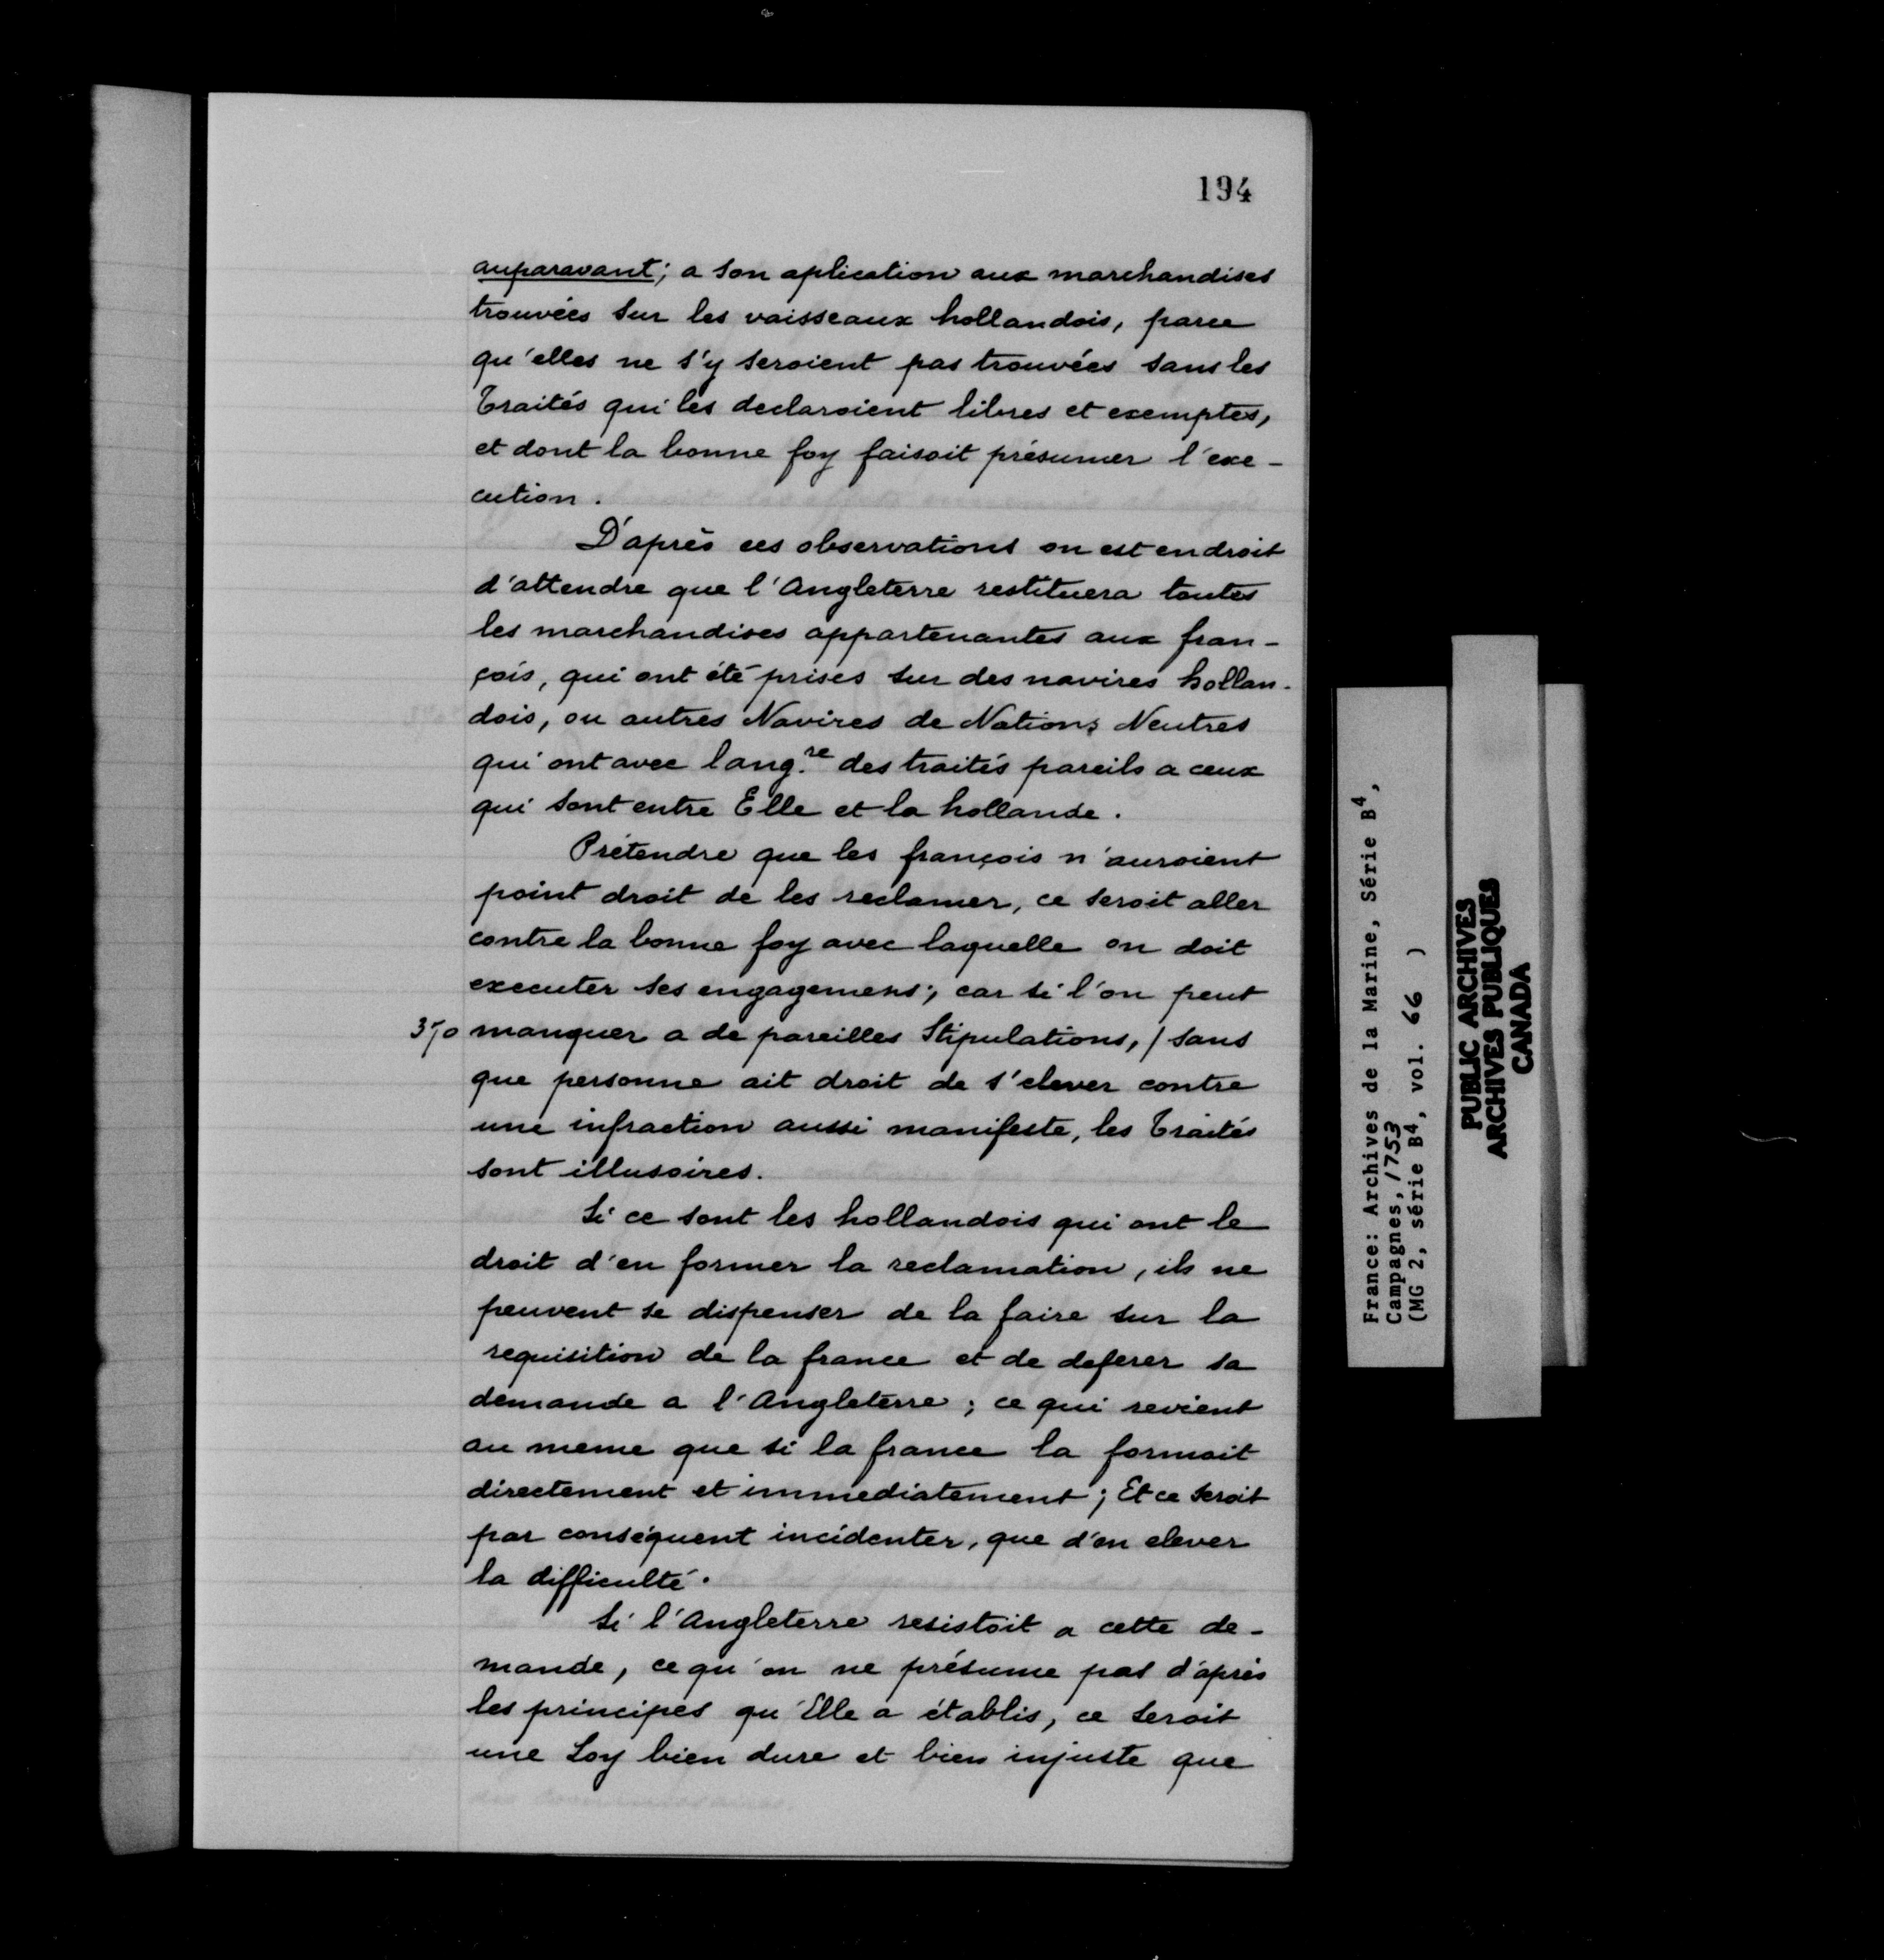 194
auparavant; a son aplication aux marchandises
trouvées sur les vaisseaux hollandois, parce
qu'elles ne s'y seroient pas trouvées sans les
Traités qui les declaroient libres et exemptes,
et dont la bonne foy faisoit présumer l'exe-
cution.
D'après ces observations on est en droit
d'attendre que l'Angleterre restituera toutes
les marchandises appartenantes aux fran-
çois, qui ont été prises sur des navires hollan-
dois, ou autres Navires de Nations Neutres
qui ont avec lang.re des traités pareils a ceux
qui sont entre Elle et la hollande.
Prétendre que les françois n'auroient
point droit de les reclamer, ce seroit aller
contre la bonne foy avec laquelle on doit
executer ses engagemens; car si l'on peut
manquer a de pareilles Stipulations, / sans
que personne ait droit de s'elever contre
une infraction aussi manifeste, les Traités
sont illusoires.
Si ce sont les hollandois qui ont le
droit d'en former la reclamation, ils ne
peuvent se dispenser de la faire sur la
requisition de la france et de deferer sa
demande a l'Angleterre; ce qui revient
au meme que si la france la formoit
directement et immediatement; Et ce seroit
par conséquent incidenter, que d'en elever
la difficulté.
Si l'Angleterre resistoit a cette de-
mande, ce qu'on ne présume pas d'après
les principes qu'Elle a établis, ce seroit
une Loy bien dure et bien injuste que
France: Archives de la Marine, Série B4,
Campagnes, 1753
(MG 2, série B4, vol. 66 )
PUBLIC ARCHIVES
ARCHIVES PUBLIQUES
CANADA